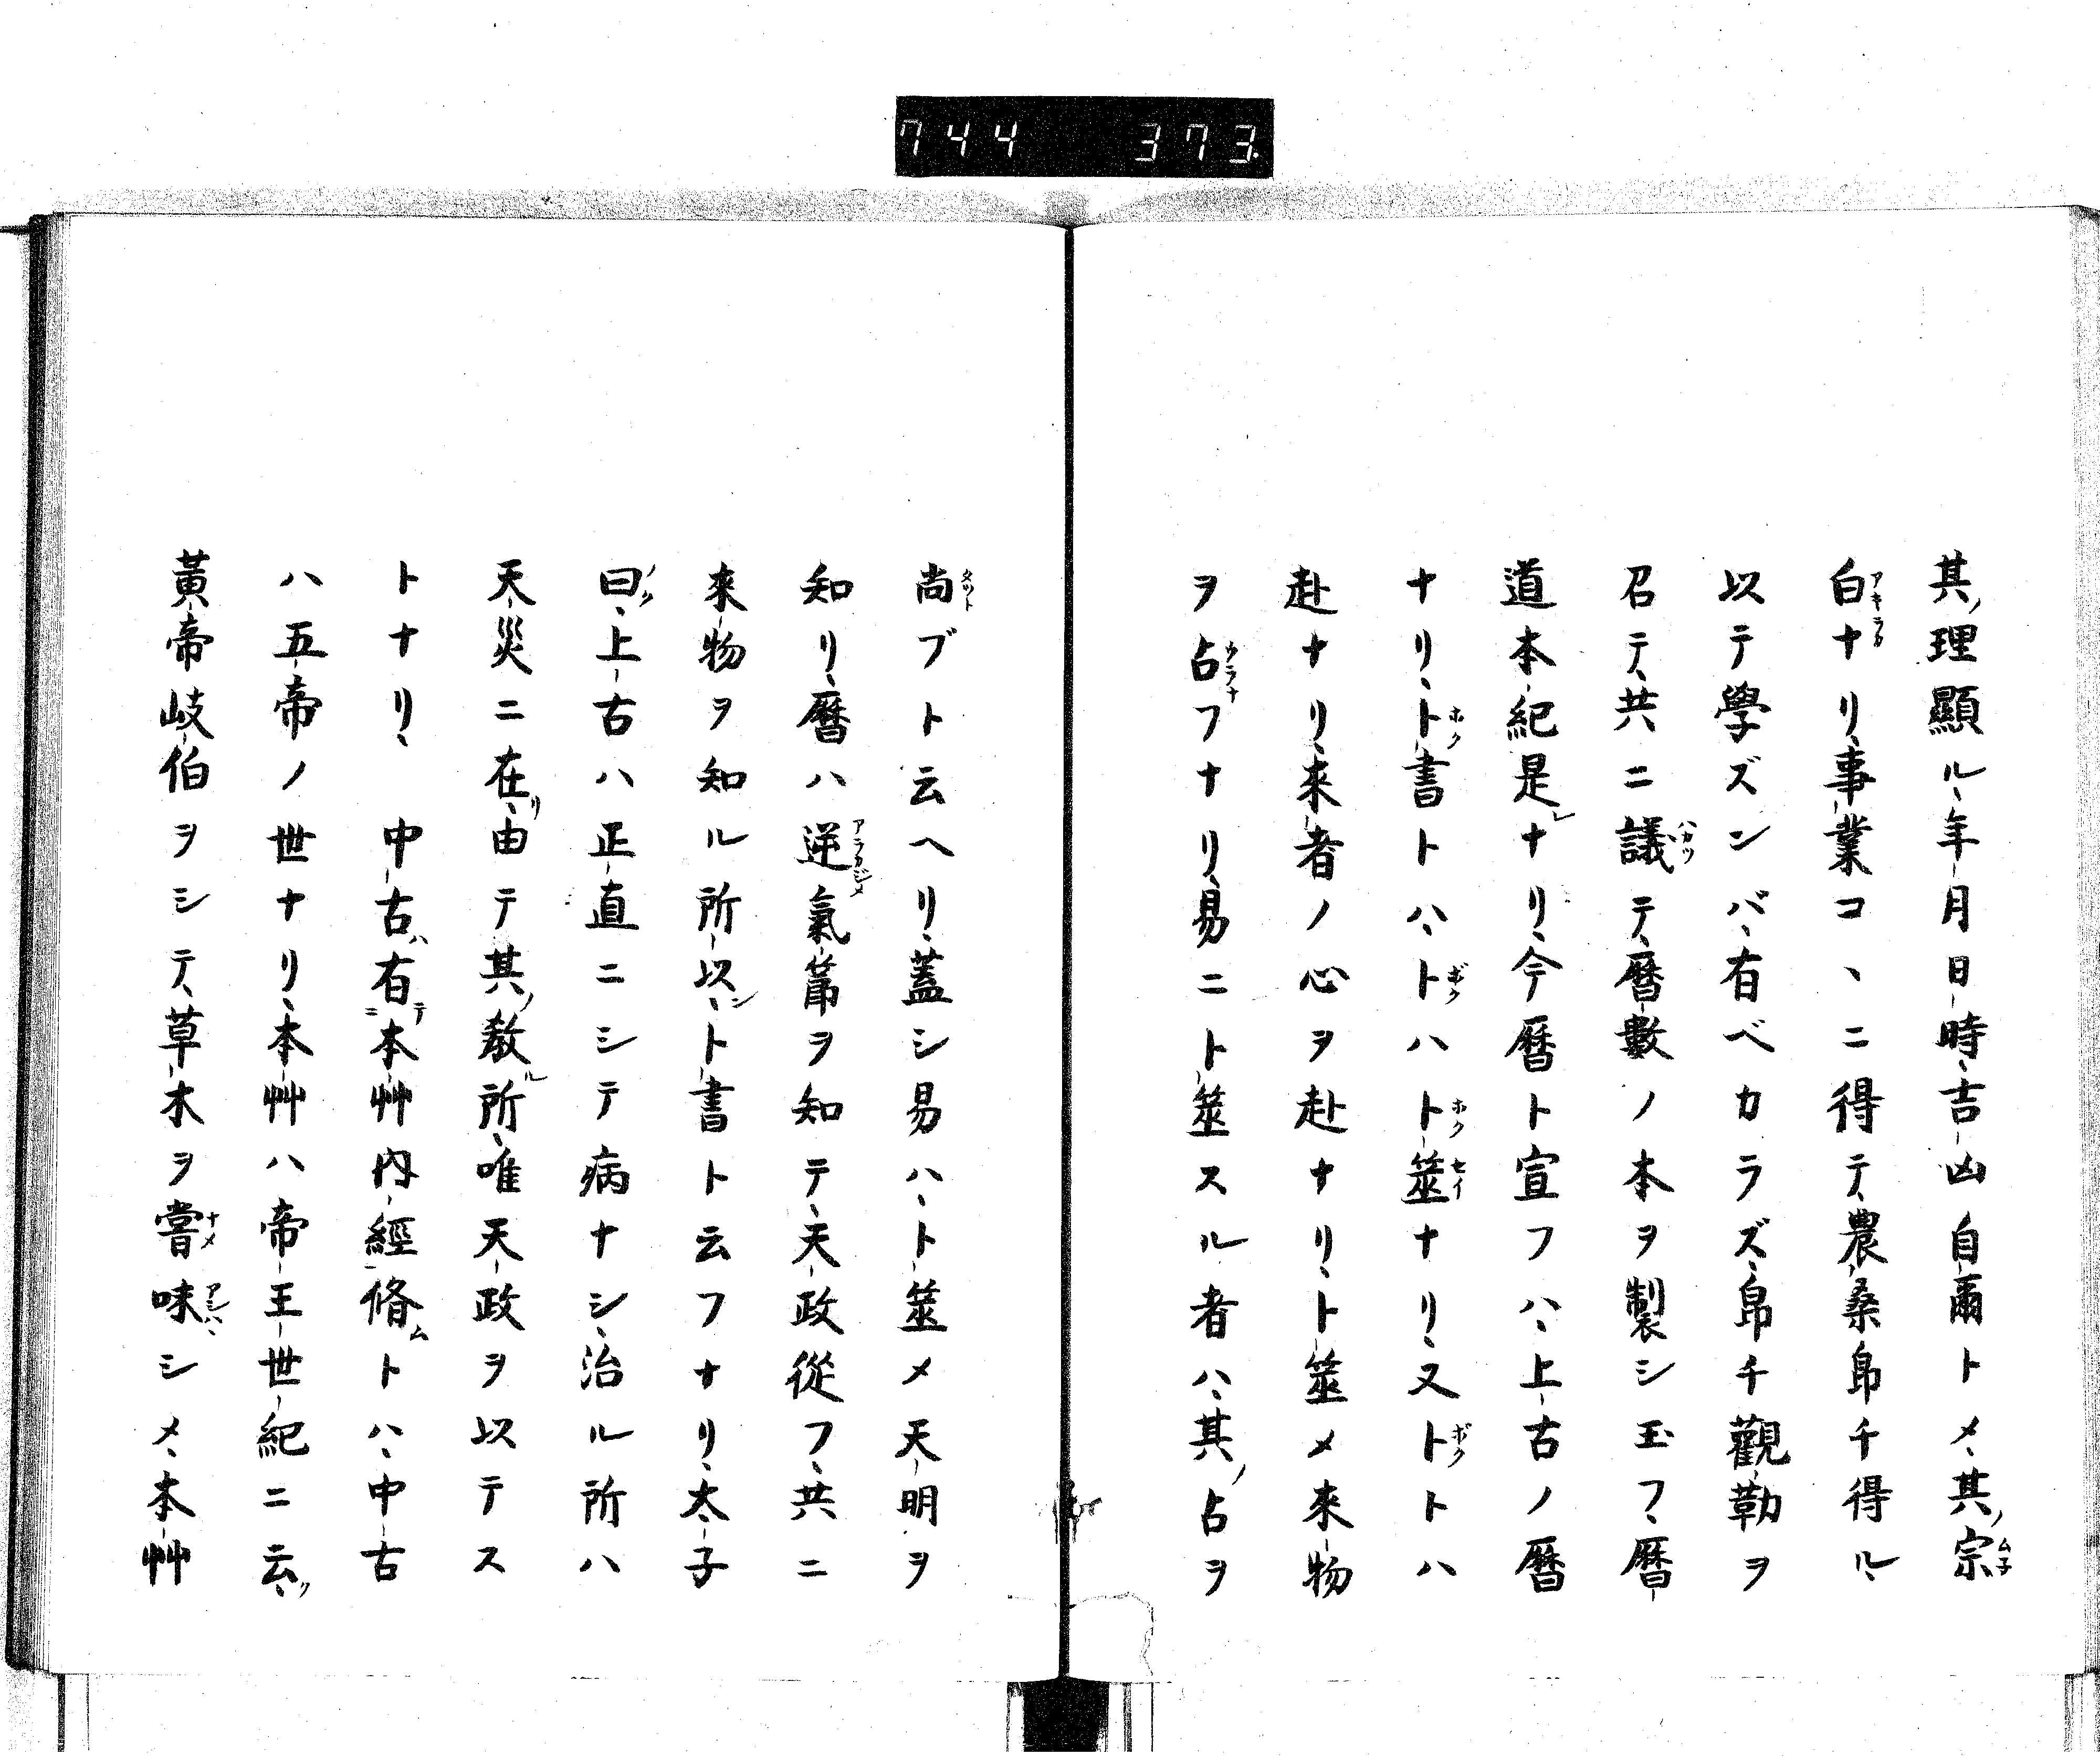 744 373
其ノ理顯ル、年月日時、吉凶自爾トメ、其ノ宗
白ナリ、事業コヽニ得テ、農桑帛チ得ル、
以テ學ズンバ、有ベカラズ、帛チ觀勒ヲ
召テ、共ニ議テ、曆數ノ本ヲ製シ玉フ、曆
道本紀是レナリ、今曆ト宣フハ、上古ノ曆
ナリ、卜書トハ、卜ハ卜筮ナリ、又卜トハ
赴ナリ、來者ノ心ヲ赴ナリ、卜筮メ來物
ヲ占フナリ、易ニ卜筮スル者ハ、其ノ占ヲ
尚ブト云ヘリ、蓋シ易ハ、卜筮メ天明ヲ
知リ、曆ハ逆氣節ヲ知テ、天政從フ、共ニ
來物ヲ知ル所以、卜書ト云フナリ、太子
曰ク、上古ハ正直ニシテ病ナシ、治ル所ハ
天災ニ在リ、由テ其ノ敎ル所、唯天政ヲ以テス
トナリ、中古ハ有テ本艸內經脩ムトハ、中古
ハ五帝ノ世ナリ、本艸ハ帝王世紀ニ云ク、
黃帝岐伯ヲシテ、草木ヲ嘗味シメ、本艸